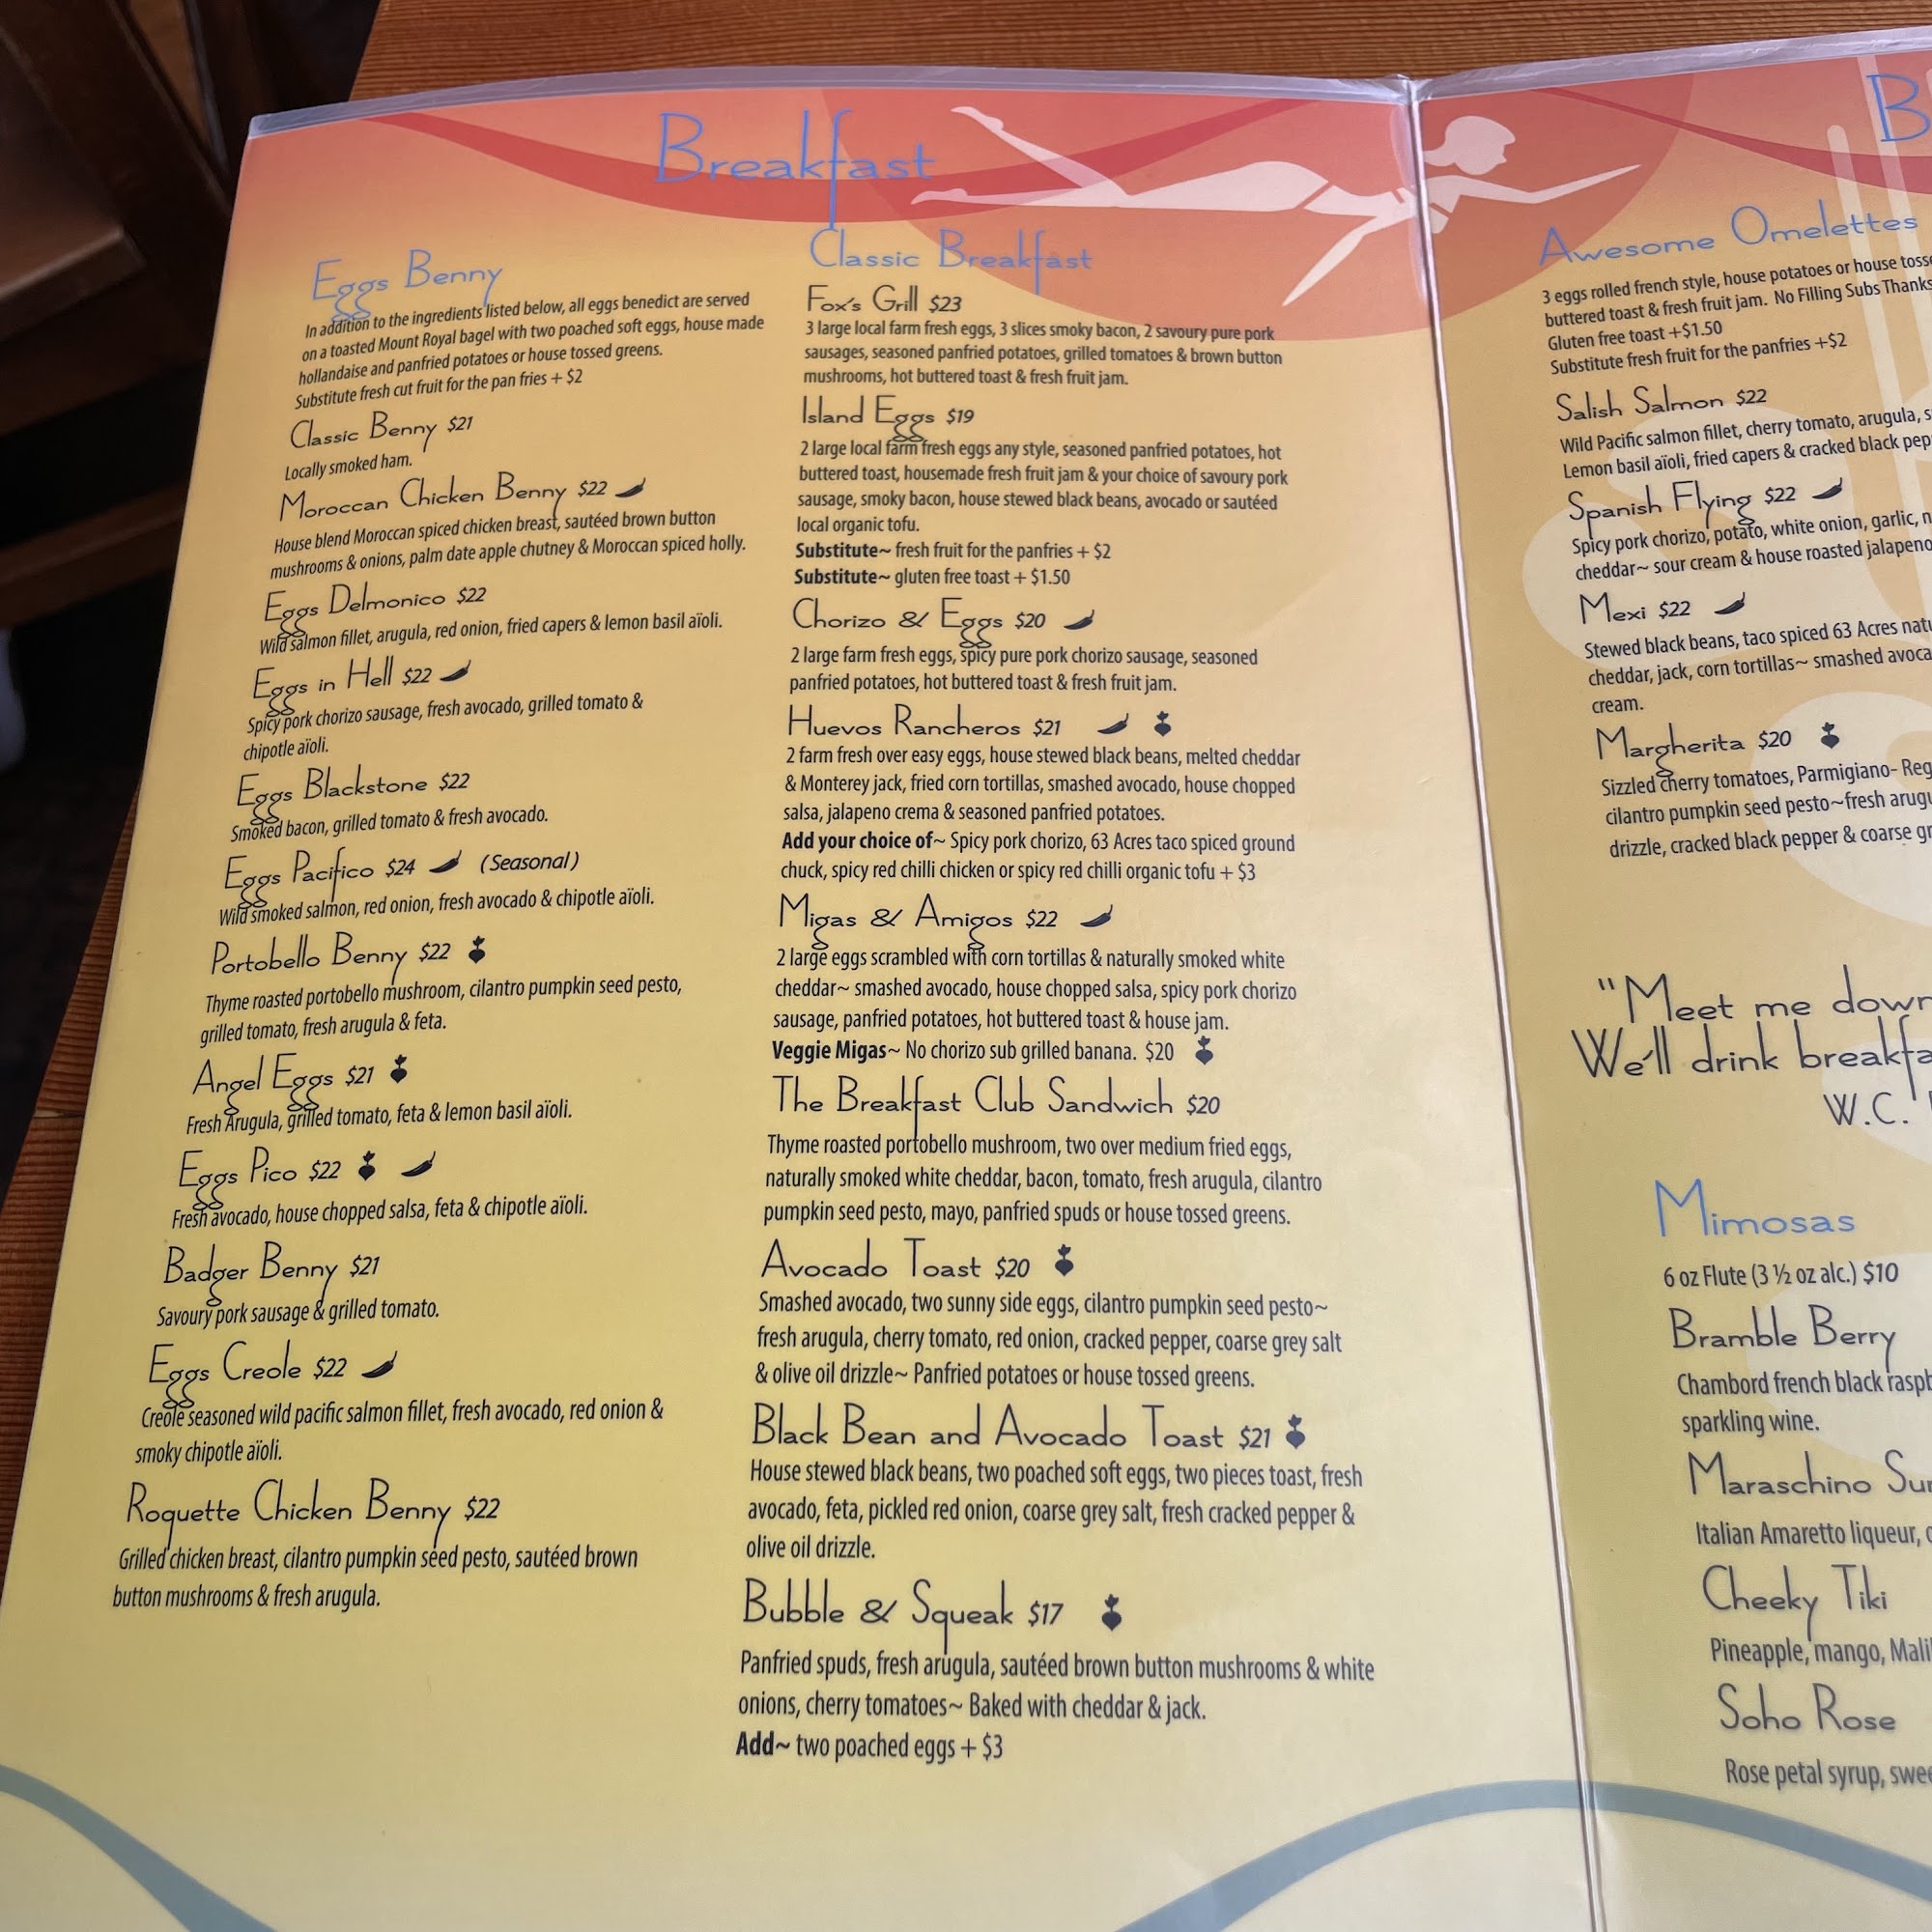 Breakfast
Eggs Benny
In addition to the ingredients listed below, all eggs benedict are served
on a toasted Mount Royal bagel with two poached soft eggs, house made
hollandaise and panfried potatoes or house tossed greens.
Substitute fresh cut fruit for the pan fries + $2
Classic Benny $21
Locally smoked ham.
Moroccan Chicken Benny $22
House blend Moroccan spiced chicken breast, sautéed brown button
mushrooms & onions, palm date apple chutney & Moroccan spiced holly.
Eggs Delmonico $22
Wild salmon fillet, arugula, red onion, fried capers & lemon basil aïoli.
Eggs in Hell $22
Spicy pork chorizo sausage, fresh avocado, grilled tomato &
chipotle aïoli.
Eggs Blackstone $22
Smoked bacon, grilled tomato & fresh avocado.
Eggs Pacifico $24 (Seasonal)
Wild smoked salmon, red onion, fresh avocado & chipotle aïoli.
Portobello Benny $22
Thyme roasted portobello mushroom, cilantro pumpkin seed pesto,
grilled tomato, fresh arugula & feta.
Angel Eggs $21
Fresh Arugula, grilled tomato, feta & lemon basil aïoli.
Eggs Pico $22
Fresh avocado, house chopped salsa, feta & chipotle aïoli.
Badger Benny $21
Savoury pork sausage & grilled tomato.
Eggs Creole $22
Creole seasoned wild pacific salmon fillet, fresh avocado, red onion &
smoky chipotle aïoli.
Roquette Chicken Benny $22
Grilled chicken breast, cilantro pumpkin seed pesto, sautéed brown
button mushrooms & fresh arugula.
Classic Breakfast
Fox's Grill $23
3 large local farm fresh eggs, 3 slices smoky bacon, 2 savoury pure pork
sausages, seasoned panfried potatoes, grilled tomatoes & brown button
mushrooms, hot buttered toast & fresh fruit jam.
Island Eggs $19
2 large local farm fresh eggs any style, seasoned panfried potatoes, hot
buttered toast, housemade fresh fruit jam & your choice of savoury pork
sausage, smoky bacon, house stewed black beans, avocado or sautéed
local organic tofu.
Substitute~ fresh fruit for the panfries + $2
Substitute~ gluten free toast + $1.50
Chorizo & Eggs $20
2 large farm fresh eggs, spicy pure pork chorizo sausage, seasoned
panfried potatoes, hot buttered toast & fresh fruit jam.
Huevos Rancheros $21
2 farm fresh over easy eggs, house stewed black beans, melted cheddar
& Monterey jack, fried corn tortillas, smashed avocado, house chopped
salsa, jalapeno crema & seasoned panfried potatoes.
Add your choice of~ Spicy pork chorizo, 63 Acres taco spiced ground
chuck, spicy red chilli chicken or spicy red chilli organic tofu + $3
Migas & Amigos $22
2 large eggs scrambled with corn tortillas & naturally smoked white
cheddar~ smashed avocado, house chopped salsa, spicy pork chorizo
sausage, panfried potatoes, hot buttered toast & house jam.
Veggie Migas~ No chorizo sub grilled banana. $20
The Breakfast Club Sandwich $20
Thyme roasted portobello mushroom, two over medium fried eggs,
naturally smoked white cheddar, bacon, tomato, fresh arugula, cilantro
pumpkin seed pesto, mayo, panfried spuds or house tossed greens.
Avocado Toast $20
Smashed avocado, two sunny side eggs, cilantro pumpkin seed pesto~
fresh arugula, cherry tomato, red onion, cracked pepper, coarse grey salt
& olive oil drizzle~ Panfried potatoes or house tossed greens.
Black Bean and Avocado Toast $21
House stewed black beans, two poached soft eggs, two pieces toast, fresh
avocado, feta, pickled red onion, coarse grey salt, fresh cracked pepper &
olive oil drizzle.
Bubble & Squeak $17
Panfried spuds, fresh arugula, sautéed brown button mushrooms & white
onions, cherry tomatoes~ Baked with cheddar & jack.
Add~ two poached eggs + $3
B
Awesome Omelettes
3 eggs rolled french style, house potatoes or house
buttered toast & fresh fruit jam. No Filling Subs Thanks
Gluten free toast +$1.50
Substitute fresh fruit for the panfries +$2
Salish Salmon $22
Wild Pacific salmon fillet, cherry tomato, arugula,
Lemon basil aïoli, fried capers & cracked black
Spanish Flying $22
Spicy pork chorizo, potato, white onion, garlic,
cheddar~ sour cream & house roasted jalapeno
Mexi $22
Stewed black beans, taco spiced 63 Acres
cheddar, jack, corn tortillas~ smashed
cream.
Margherita $20
Sizzled cherry tomatoes, Parmigiano-
cilantro pumpkin seed pesto~fresh
drizzle, cracked black pepper & coarse
"Meet me down
We'll drink
W.C.
Mimosas
6 oz Flute (3 ½ oz alc.) $10
Bramble Berry
Chambord french black
sparkling wine.
Maraschino
Italian Amaretto liqueur,
Cheeky Tiki
Pineapple, mango,
Soho Rose
Rose petal syrup,